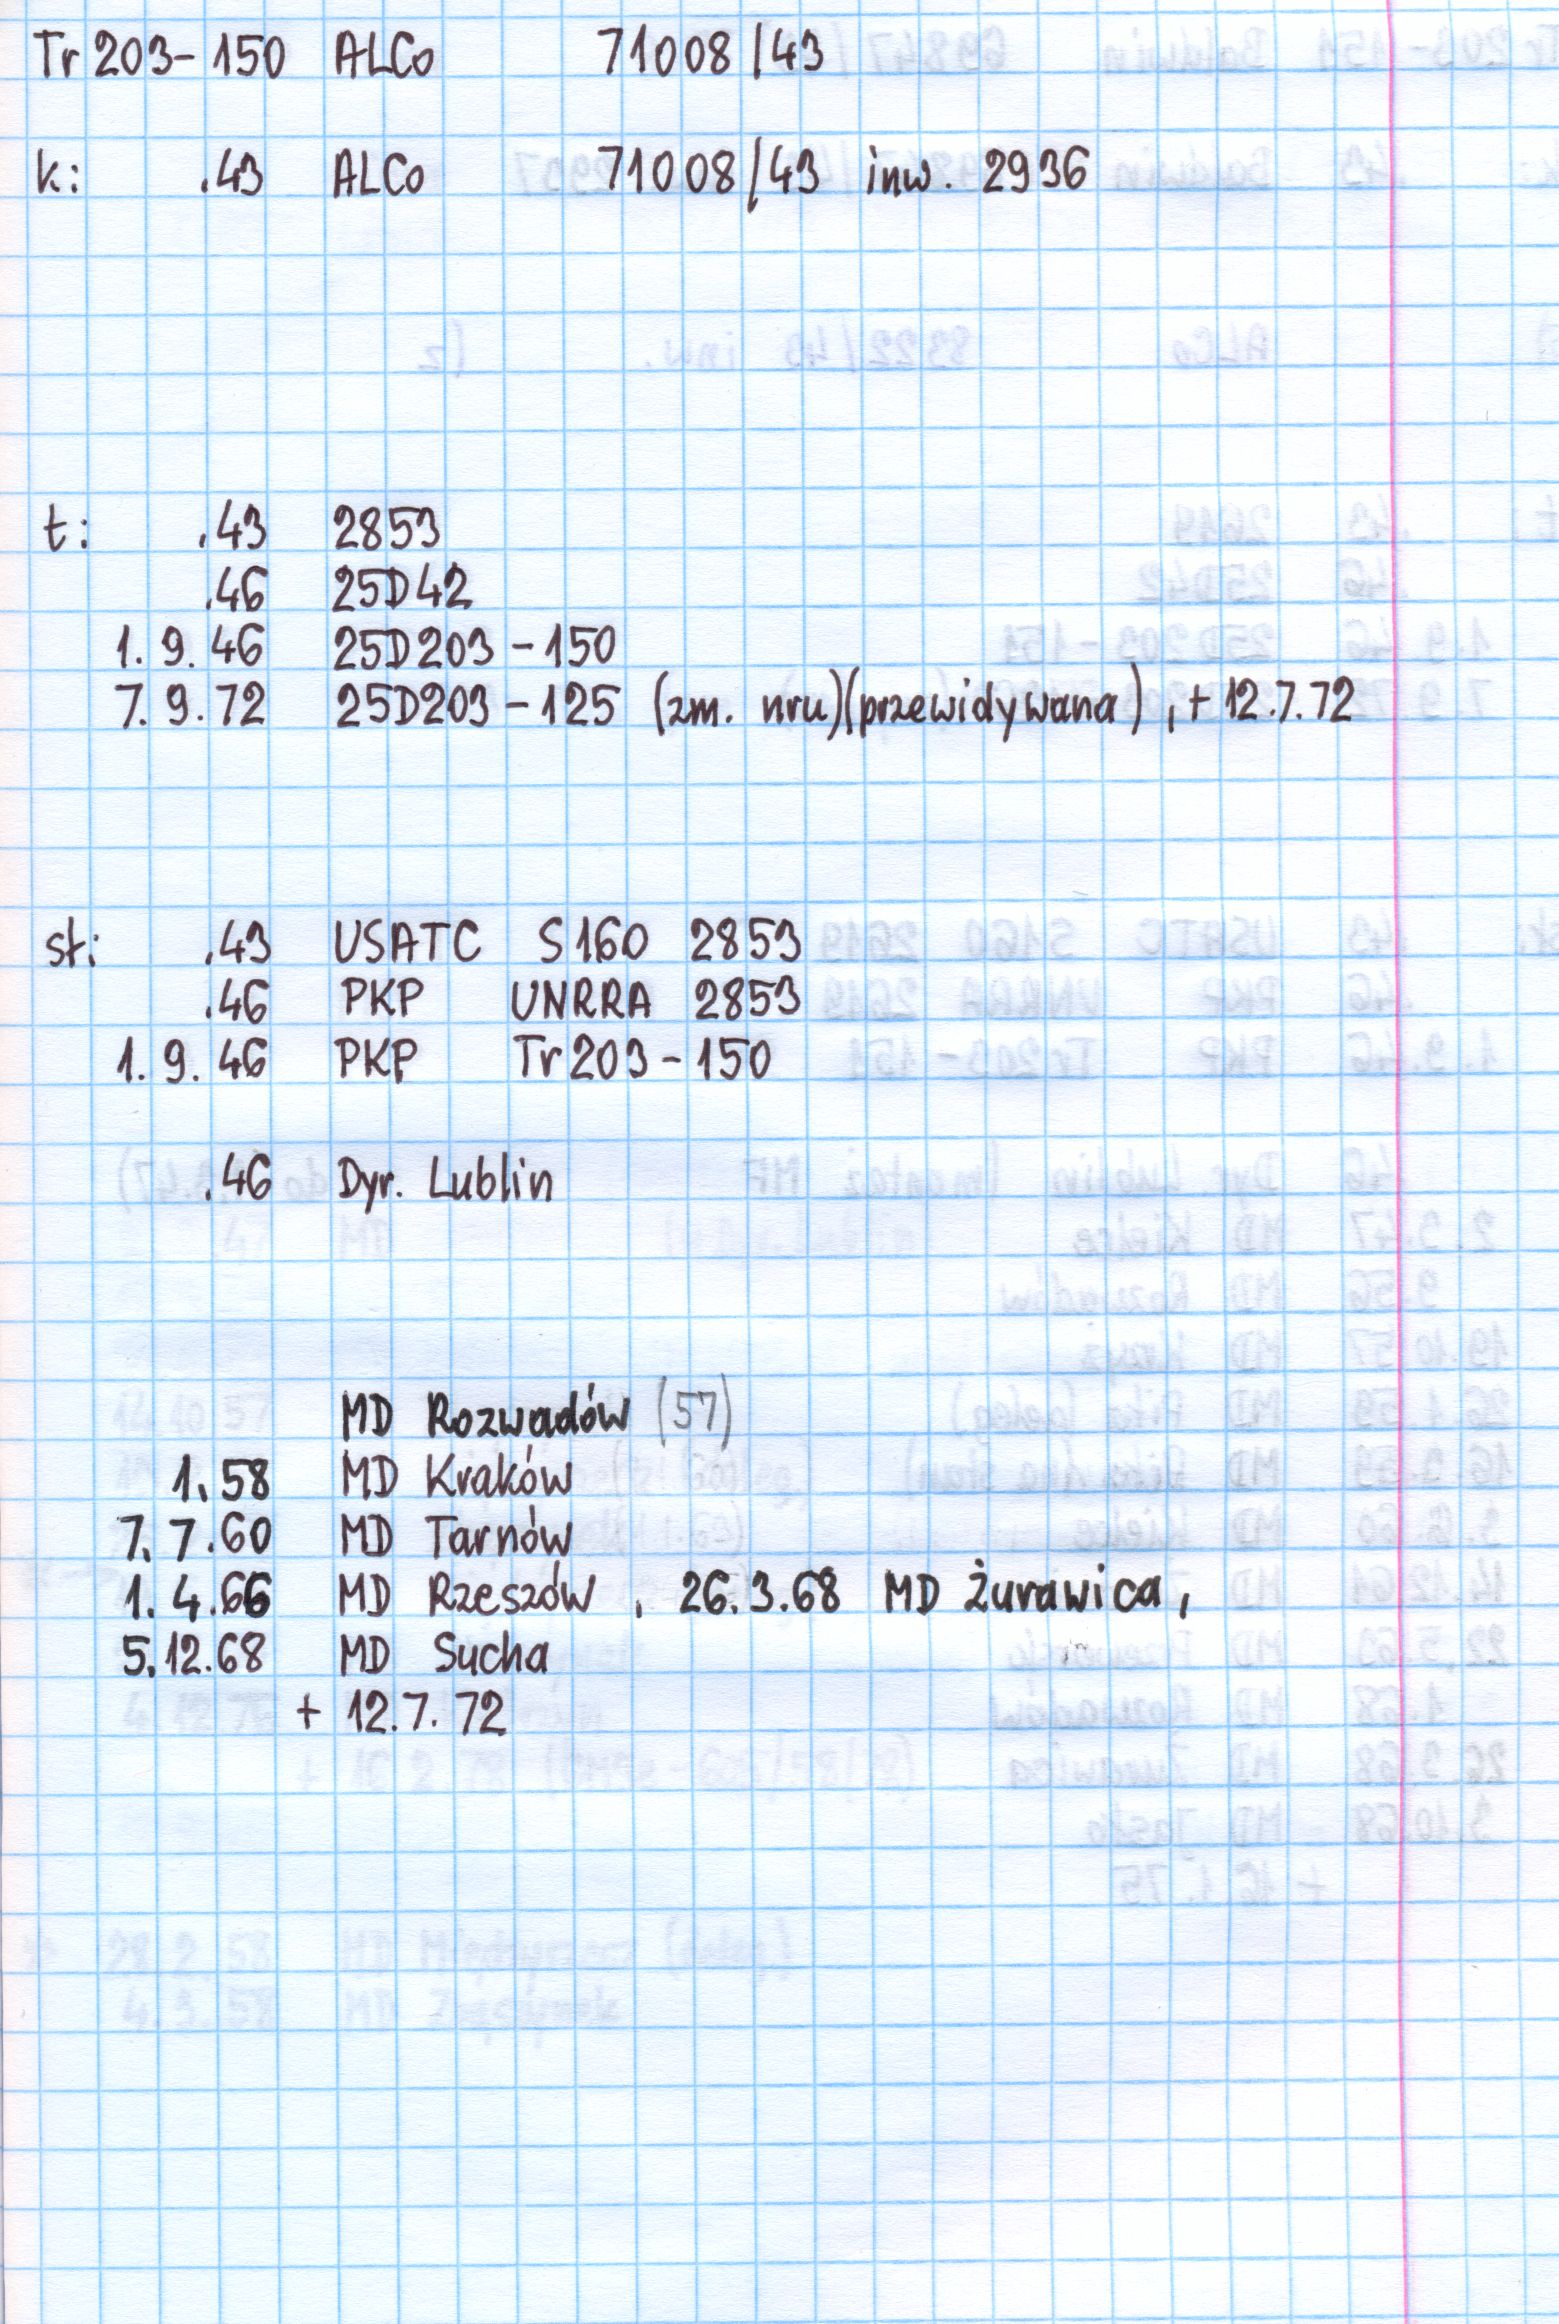 Tr 203-150 ALCo 71008/43
k: .43 ALCo 71008/43 inw. 2936
t: .43 2853
.46 25D42
1. 9. 46 25D203-150
7. 9. 72 25D203-125 (zm. nru)(przewidywana), + 12.7.72
st: .43 USATC S160 2853
.46 PKP UNRRA 2853
1. 9. 46 PKP Tr203-150
.46 Dyr. Lublin
MD Rozwadów (57)
1. 58 MD Kraków
7. 7. 60 MD Tarnów
1. 4. 66 MD Rzeszów, 26.3.68 MD Żurawica,
5.12.68 MD Sucha
+ 12.7.72